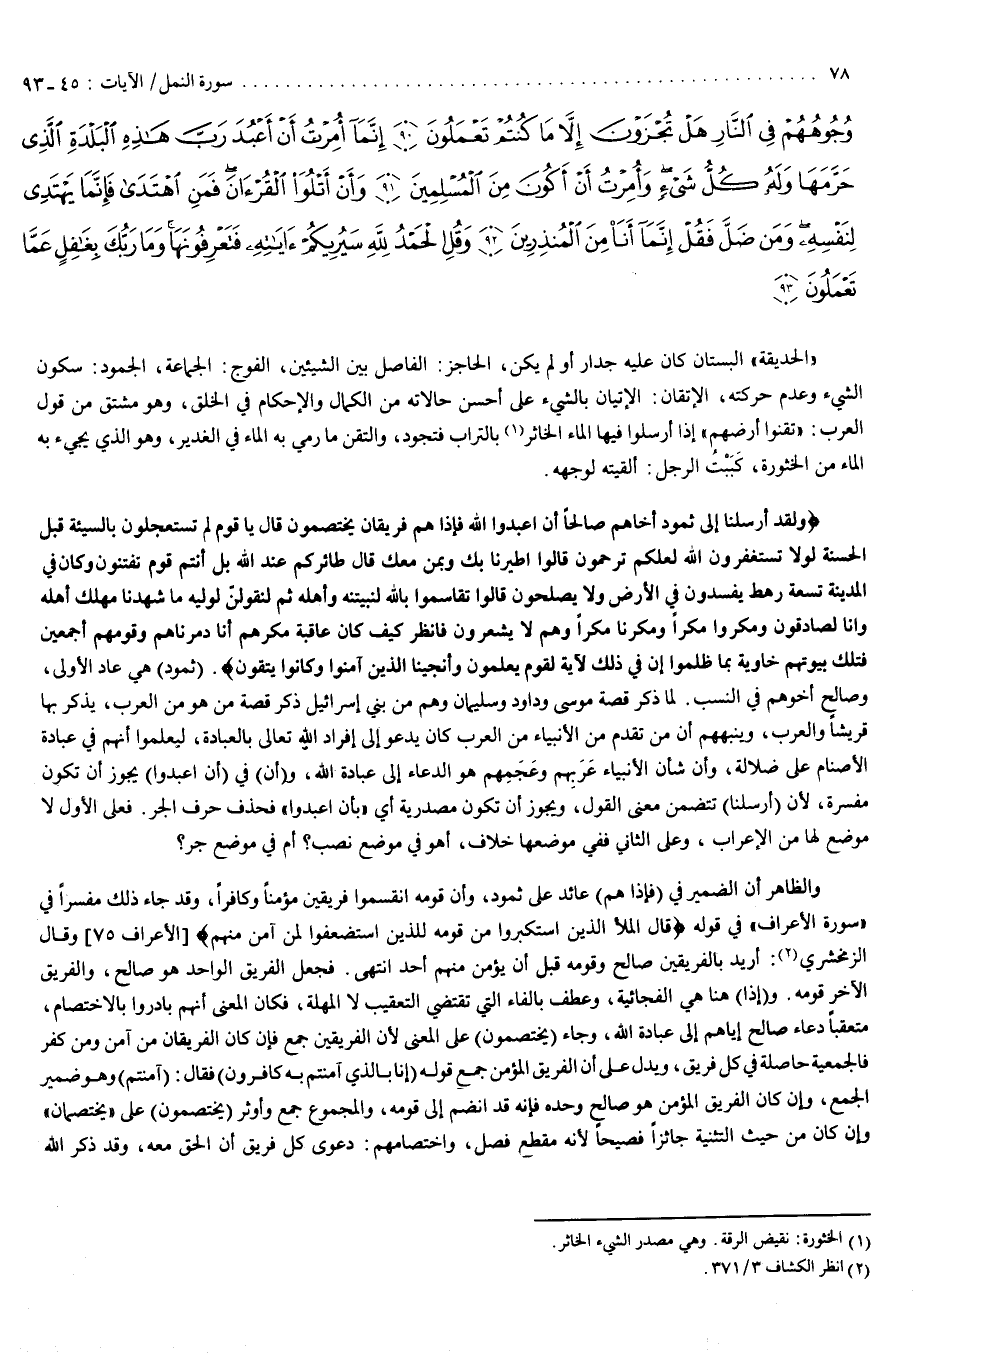 ٧٨ ........ سورة النمل/ الآيات : ٤٥ ـ ٩٣
وُجُوهُهُمْ فِي النَّارِ هَلْ تُجْزَوْنَ إِلَّا مَا كُنتُمْ تَعْمَلُونَ ﴿٩٠﴾ إِنَّمَا أُمِرْتُ أَنْ أَعْبُدَ رَبَّ هَٰذِهِ الْبَلْدَةِ الَّذِي
حَرَّمَهَا وَلَهُ كُلُّ شَيْءٍ وَأُمِرْتُ أَنْ أَكُونَ مِنَ الْمُسْلِمِينَ ﴿٩١﴾ وَأَنْ أَتْلُوَا الْقُرْءَانَ فَمَنِ اهْتَدَىٰ فَإِنَّمَا يَهْتَدِي
لِنَفْسِهِ وَمَن ضَلَّ فَقُلْ إِنَّمَا أَنَا۠ مِنَ الْمُنذِرِينَ ﴿٩٢﴾ وَقُلِ الْحَمْدُ لِلَّهِ سَيُرِيكُمْ ءَايَٰتِهِ فَتَعْرِفُونَهَا وَمَا رَبُّكَ بِغَٰفِلٍ عَمَّا
تَعْمَلُونَ ﴿٩٣﴾
«الحديقة» البستان كان عليه جدار أو لم يكن، الحاجز: الفاصل بين الشيئين، الفوج: الجماعة، الجمود: سكون
الشيء وعدم حركته، الإتقان: الإتيان بالشيء على أحسن حالاته من الكمال والإحكام في الخلق، وهو مشتق من قول
العرب: «تقنوا أرضهم» إذا أرسلوا فيها الماء الخاثر(١) بالتراب فتجود، والتقن ما رمي به الماء في الغدير، وهو الذي يجيء به
الماء من الخثورة، كَبَبْتُ الرجل: ألقيته لوجهه.
﴿ولقد أرسلنا إلى ثمود أخاهم صالحاً أن اعبدوا الله فإذا هم فريقان يختصمون قال يا قوم لم تستعجلون بالسيئة قبل
الحسنة لولا تستغفرون الله لعلكم ترحمون قالوا اطيرنا بك وبمن معك قال طائركم عند الله بل أنتم قوم تفتنون وكان في
المدينة تسعة رهط يفسدون في الأرض ولا يصلحون قالوا تقاسموا بالله لنبيتنه وأهله ثم لنقولنّ لوليه ما شهدنا مهلك أهله
وانا لصادقون ومكروا مكراً ومكرنا مكراً وهم لا يشعرون فانظر كيف كان عاقبة مكرهم أنا دمرناهم وقومهم أجمعين
فتلك بيوتهم خاوية بما ظلموا إن في ذلك لآية لقوم يعلمون وأنجينا الذين آمنوا وكانوا يتقون﴾. (ثمود) هي عاد الأولى،
وصالح أخوهم في النسب. لما ذكر قصة موسى وداود وسليمان وهم من بني إسرائيل ذكر قصة من هو من العرب، يذكر بها
قريشاً والعرب، وينبههم أن من تقدم من الأنبياء من العرب كان يدعو إلى إفراد الله تعالى بالعبادة، ليعلموا أنهم في عبادة
الأصنام على ضلالة، وأن شأن الأنبياء عَرَبِهم وعَجَمِهم هو الدعاء إلى عبادة الله، و(أن) في (أن اعبدوا) يجوز أن تكون
مفسرة، لأن (أرسلنا) تتضمن معنى القول، ويجوز أن تكون مصدرية أي «بأن اعبدوا» فحذف حرف الجر. فعلى الأول لا
موضع لها من الإعراب ، وعلى الثاني ففي موضعها خلاف، أهو في موضع نصب؟ أم في موضع جر؟
والظاهر أن الضمير في (فإذا هم) عائد على ثمود، وأن قومه انقسموا فريقين مؤمناً وكافراً، وقد جاء ذلك مفسراً في
«سورة الأعراف» في قوله ﴿قال الملأ الذين استكبروا من قومه للذين استضعفوا لمن آمن منهم﴾ [الأعراف ٧٥] وقال
الزمخشري(٢): أريد بالفريقين صالح وقومه قبل أن يؤمن منهم أحد انتهى. فجعل الفريق الواحد هو صالح، والفريق
الآخر قومه. و(إذا) هنا هي الفجائية، وعطف بالفاء التي تقتضي التعقيب لا المهلة، فكان المعنى أنهم بادروا بالاختصام،
متعقباً دعاء صالح إياهم إلى عبادة الله، وجاء (يختصمون) على المعنى لأن الفريقين جمع فإن كان الفريقان من آمن ومن كفر
فالجمعية حاصلة في كل فريق، ويدل على أن الفريق المؤمن جمع قوله (إنا بالذي آمنتم به كافرون) فقال: (آمنتم) وهو ضمير
الجمع، وإن كان الفريق المؤمن هو صالح وحده فإنه قد انضم إلى قومه، والمجموع جمع وأوثر (يختصمون) على «يختصمان»
وإن كان من حيث التثنية جائزاً فصيحاً لأنه مقطع فصل، واختصامهم: دعوى كل فريق أن الحق معه، وقد ذكر الله
(١) الخثورة: نقيض الرقة. وهي مصدر الشيء الخاثر.
(٢) انظر الكشاف ٣٧١/٣.